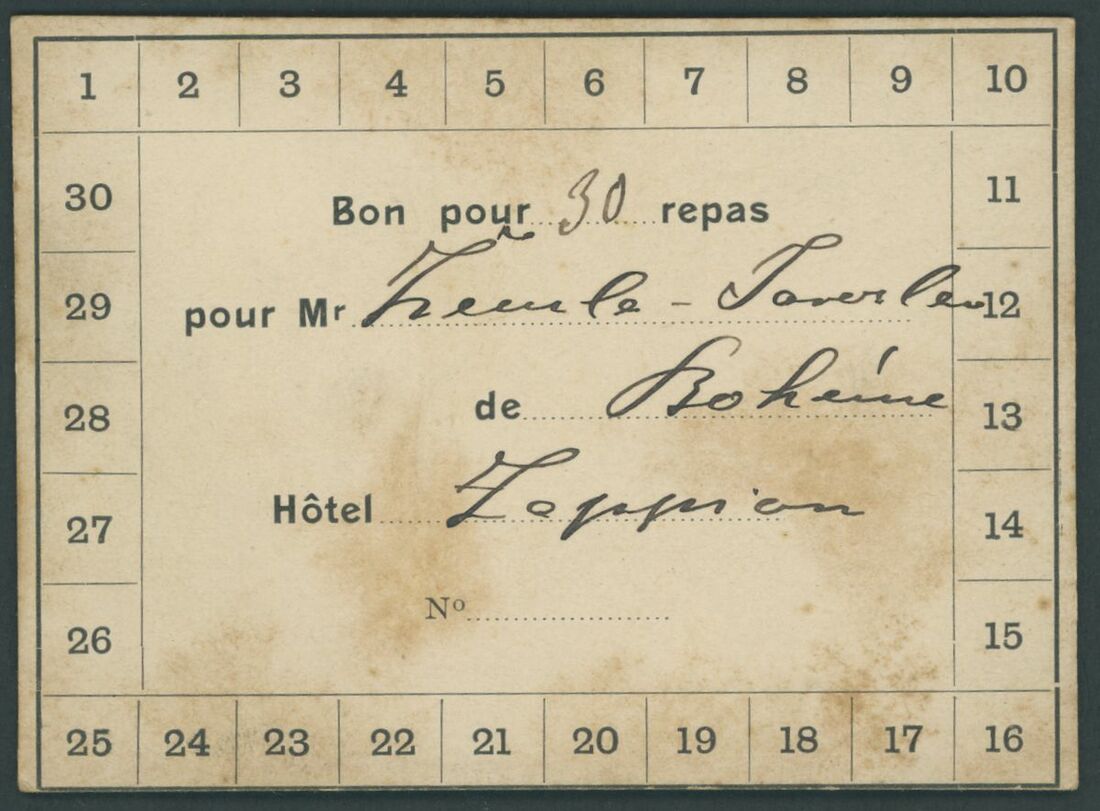 1 2 3 4 5 6 7 8 9 10
30 11
Bon pour 30 repas
29 pour Mr 12
28 de Bohéme 13
27 Hôtel Zappion 14
Nº
26 15
25 24 23 22 21 20 19 18 17 16